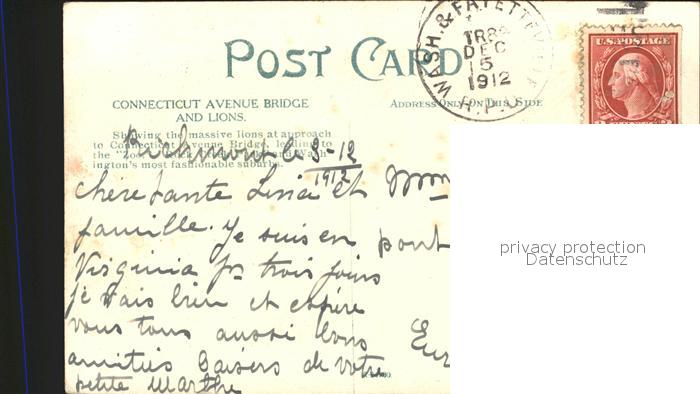 POST CARD
WASH. & FAYETTEVILLE
TR 82
DEC
5
1912
R.P.O.
U.S. POSTAGE
CONNECTICUT AVENUE BRIDGE
AND LIONS.
ADDRESS ONLY ON THIS SIDE
Showing the massive lions at approach
to Connecticut Avenue Bridge, leading to
the "Zoo", and Wash-
ington's most fashionable suburbs.
Richmond le 3-12
1912
chère tante Lina et
famille. Je suis en
Virginia pr trois jours
je vais bien et espère
vous tous aussi bons
amitiés baisers de votre
petite Marthe
Mm
pont
Eur
privacy protection
Datenschutz